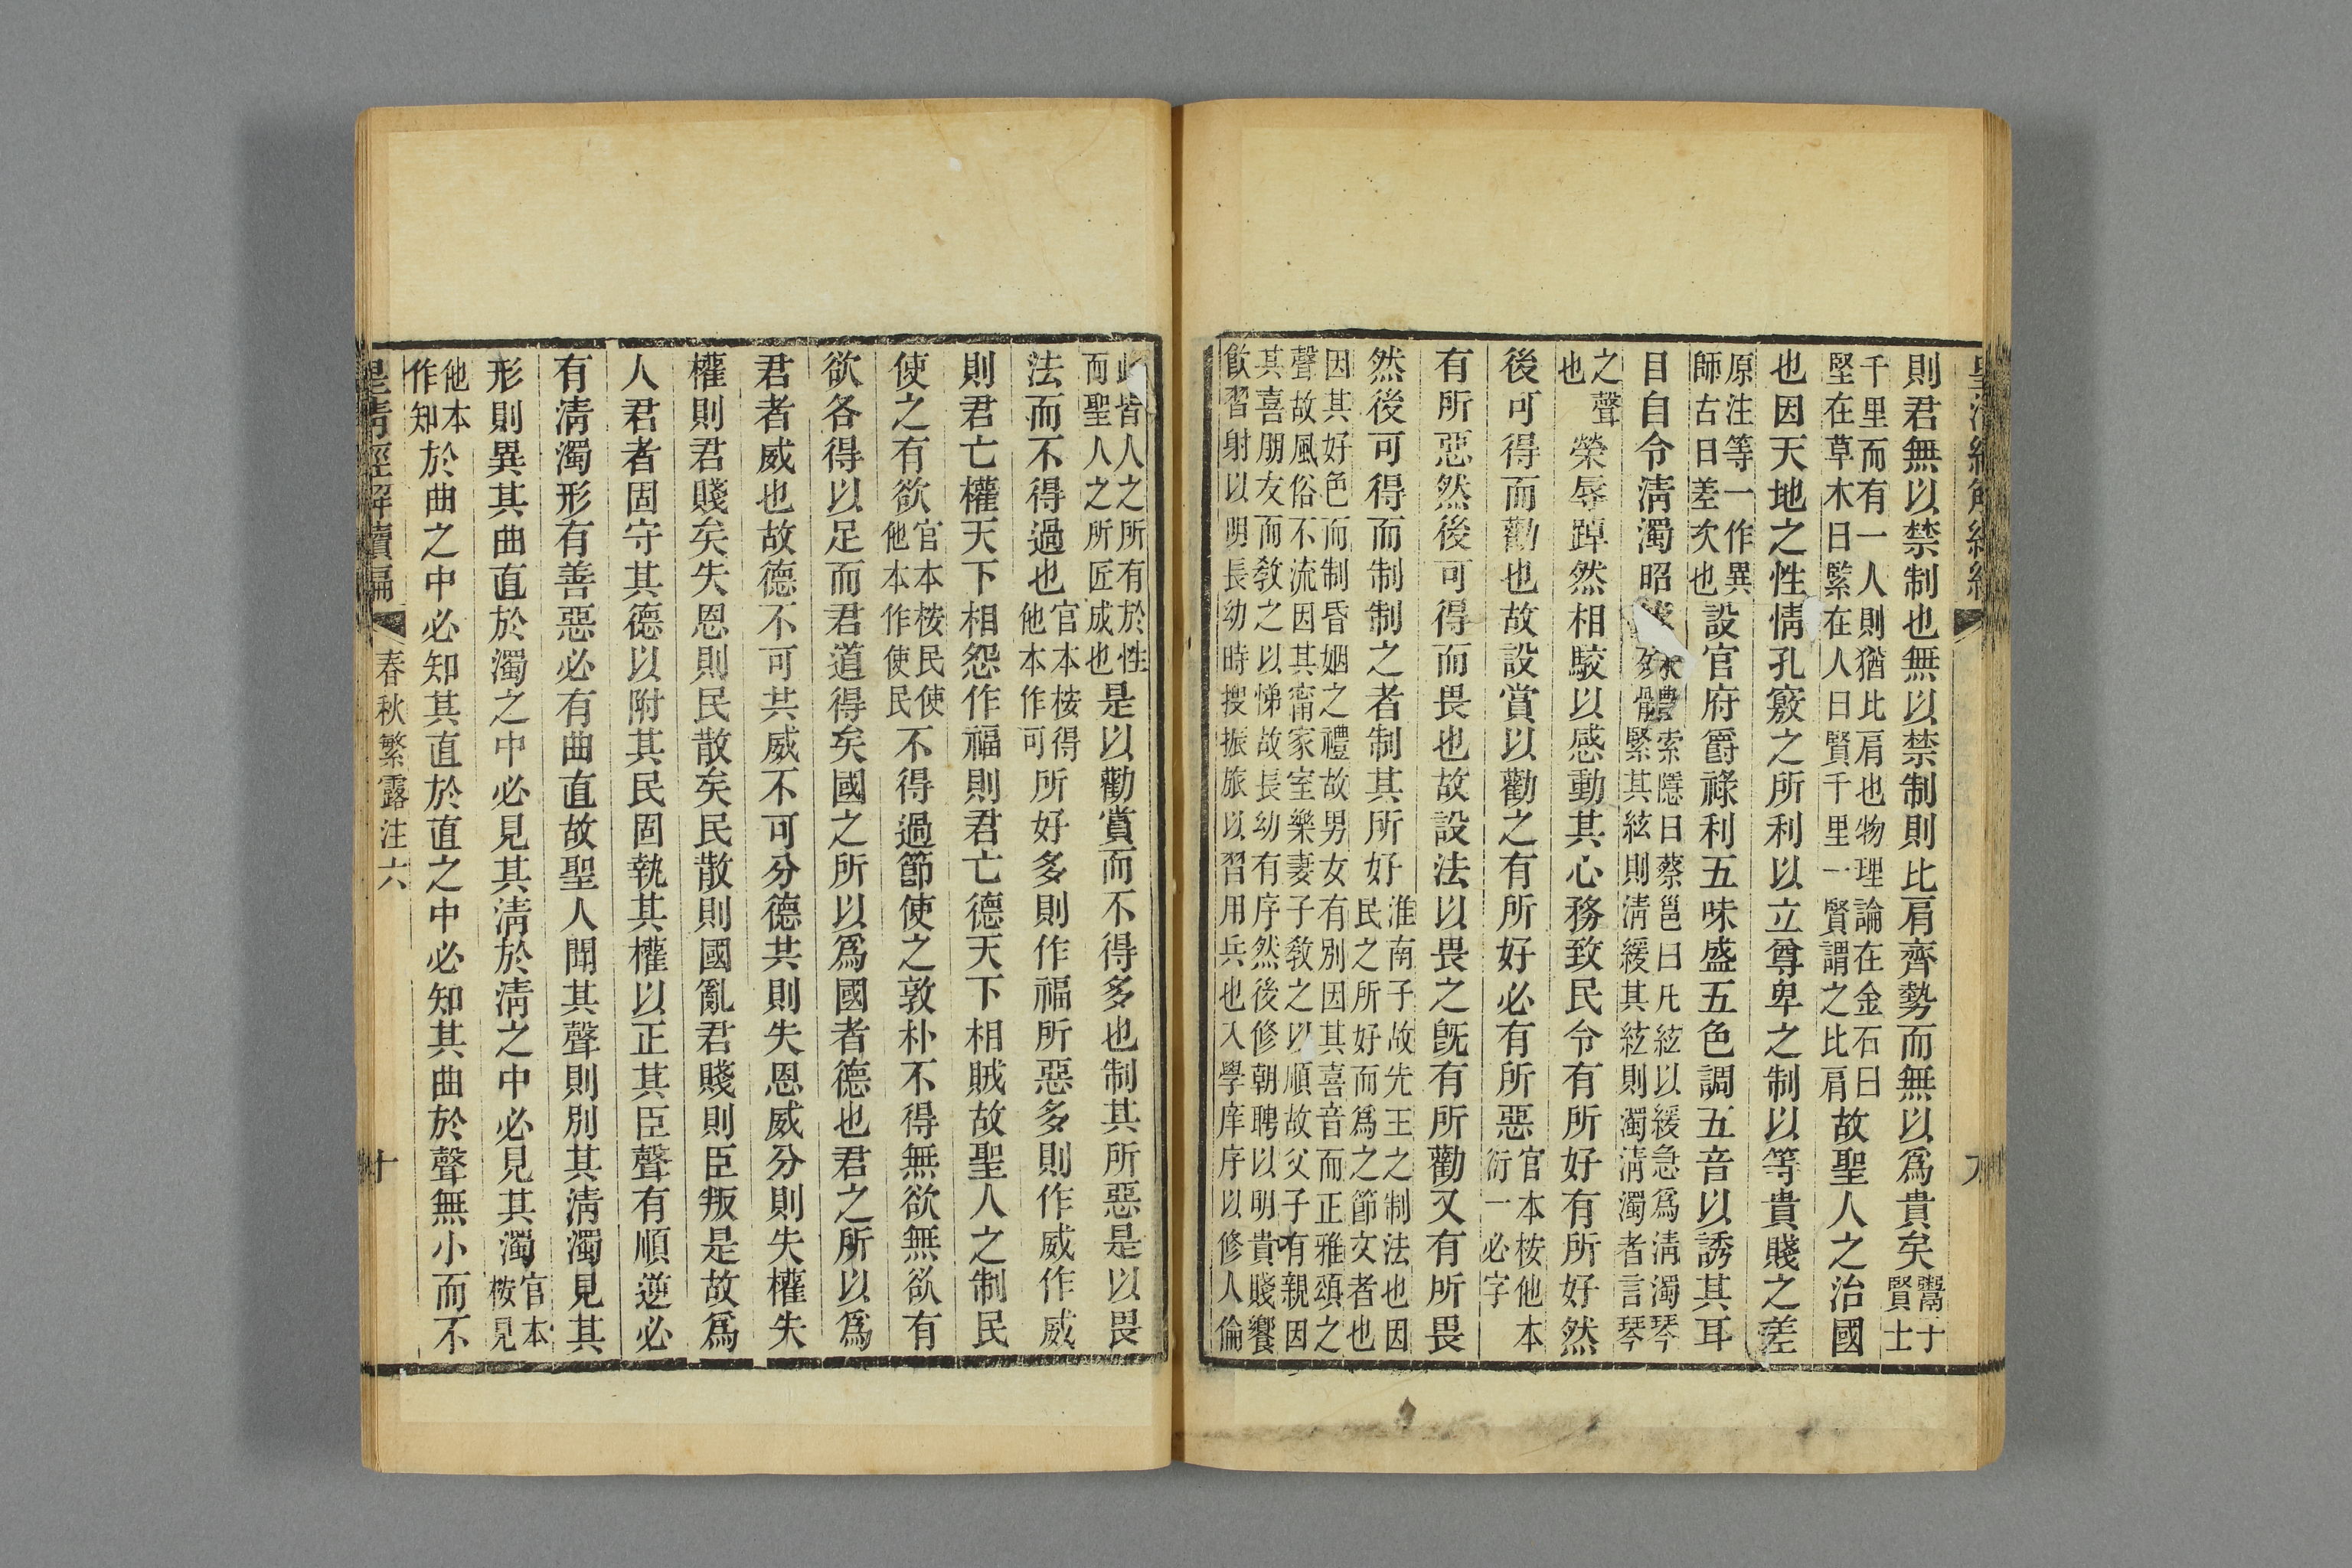 則君無以禁制也無以禁制則比肩齊勢而無以爲貴矣鬻子賢士
千里而有一人則猶比肩也物理論在金石曰堅在草木曰緊在人曰賢千里一賢謂之比肩故聖人之治國
也因天地之性情孔竅之所利以立尊卑之制以等貴賤之差
原注等一作異師古曰差次也設官府爵祿利五味盛五色調五音以誘其耳
目自令淸濁昭體索隱曰蔡邕曰凡絃以緩急爲淸濁琴緊其絃則淸緩其絃則濁淸濁者言琴
之聲也榮辱踔然相駮以感動其心務致民令有所好有所好然
後可得而勸也故設賞以勸之有所好必有所惡官本桉他本衍一必字
有所惡然後可得而畏也故設法以畏之旣有所勸又有所畏
然後可得而制制之者制其所好淮南子故先王之制法也因民之所好而爲之節文者也
因其好色而制昏姻之禮故男女有別因其喜音而正雅頌之聲故風俗不流因其甯家室樂妻子敎之以順故父子有親因
其喜朋友而敎之以悌故長幼有序然後修朝聘以明貴賤饗飮習射以明長幼時搜振旅以習用兵也入學庠序以修人倫
此皆人之所有於性而聖人之所匠成也是以勸賞而不得多也制其所惡是以畏
法而不得過也官本桉得他本作可所好多則作福所惡多則作威作威
則君亡權天下相怨作福則君亡德天下相賊故聖人之制民
使之有欲官本桉民使他本作使民不得過節使之敦朴不得無欲無欲有
欲各得以足而君道得矣國之所以爲國者德也君之所以爲
君者威也故德不可共威不可分德共則失恩威分則失權失
權則君賤矣失恩則民散矣民散則國亂君賤則臣叛是故爲
人君者固守其德以附其民固執其權以正其臣聲有順逆必
有淸濁形有善惡必有曲直故聖人聞其聲則別其淸濁見其
形則異其曲直於濁之中必見其淸於淸之中必見其濁官本桉見
他本作知於曲之中必知其直於直之中必知其曲於聲無小而不
皇淸經解續編
春秋繁露注六
十